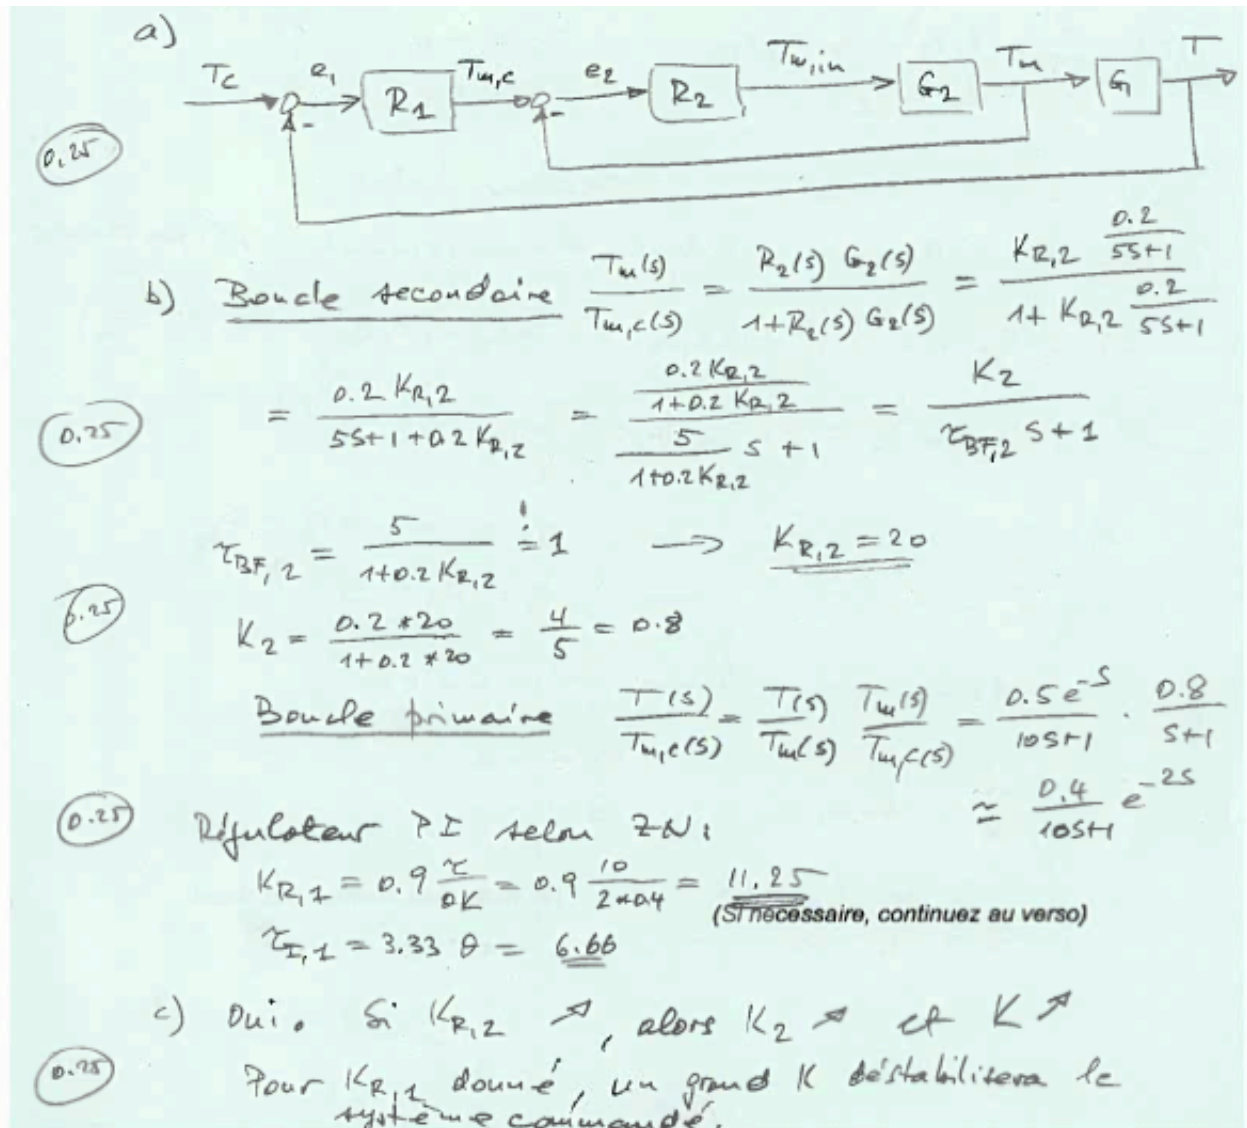 a)
T_c e_1 R_1 T_{m,c} e_2 R_2 T_{w,in} G_2 T_m G_1 T
- -
0,25
b) Boucle secondaire T_m(s)/T_{m,c}(s) = R_2(s) G_2(s)/(1+R_2(s) G_2(s)) = (K_{R,2} 0.2/(5s+1))/(1+ K_{R,2} 0.2/(5s+1))
0.25
= 0.2 K_{R,2}/(5s+1+0.2 K_{R,2}) = (0.2 K_{R,2}/(1+0.2 K_{R,2}))/(5/(1+0.2 K_{R,2}) s + 1) = K_2/(τ_{BF,2} s + 1)
τ_{BF,2} = 5/(1+0.2 K_{R,2}) =! 1 → K_{R,2} = 20
0.25
K_2 = 0.2 * 20/(1+0.2 * 20) = 4/5 = 0.8
Boucle primaire T(s)/T_{m,c}(s) = T(s)/T_m(s) T_m(s)/T_{m,c}(s) = 0.5 e^{-s}/(10s+1) · 0.8/(s+1)
≃ 0.4/(10s+1) e^{-2s}
0.25
Régulateur PI selon ZN:
K_{R,1} = 0.9 τ/(θK) = 0.9 10/(2*0.4) = 11.25
(Si nécessaire, continuez au verso)
τ_{I,1} = 3.33 θ = 6.66
c) Oui. Si K_{R,2} ↗, alors K_2 ↗ et K ↗
0.25
Pour K_{R,1} donné, un grand K déstabilisera le
système commandé.